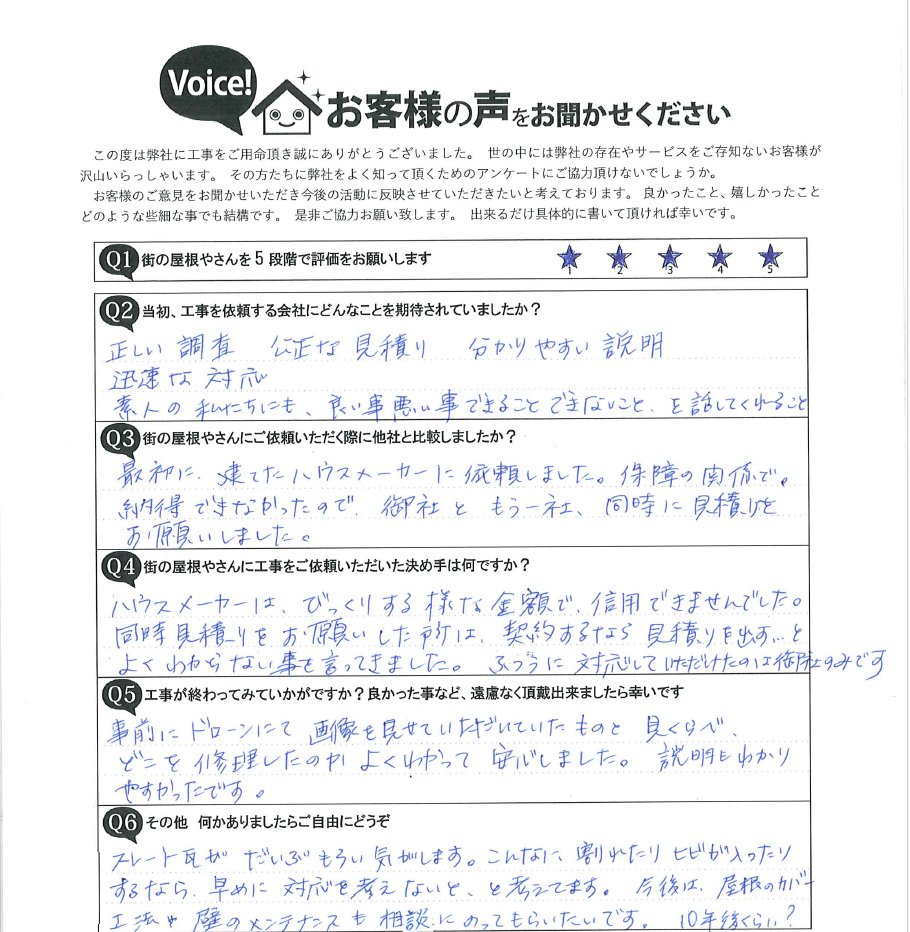 Voice!
お客様の声をお聞かせください
この度は弊社に工事をご用命頂き誠にありがとうございました。 世の中には弊社の存在やサービスをご存知ないお客様が
沢山いらっしゃいます。 その方たちに弊社をよく知って頂くためのアンケートにご協力頂けないでしょうか。
お客様のご意見をお聞かせいただき今後の活動に反映させていただきたいと考えております。 良かったこと、嬉しかったこと
どのような些細な事でも結構です。 是非ご協力お願い致します。 出来るだけ具体的に書いて頂ければ幸いです。
Q1 街の屋根やさんを5段階で評価をお願いします
1 2 3 4 5
Q2 当初、工事を依頼する会社にどんなことを期待されていましたか？
正しい調査 公正な見積り 分かりやすい説明
迅速な対応
素人の私たちにも、良い事悪い事できることできないこと、を話してくれること
Q3 街の屋根やさんにご依頼いただく際に他社と比較しましたか？
最初に、建てたハウスメーカーに依頼しました。保障の関係で。
納得できなかったので、御社ともう一社、同時に見積りを
お願いしました。
Q4 街の屋根やさんに工事をご依頼いただいた決め手は何ですか？
ハウスメーカーは、びっくりする様な金額で、信用できませんでした。
同時見積りをお願いした所は、契約するなら見積りを出す…と
よくわからない事を言ってきました。 ふつうに対応していただけたのは御社のみです
Q5 工事が終わってみていかがですか？良かった事など、遠慮なく頂戴出来ましたら幸いです
事前にドローンにて画像を見せていただいていたものと見くらべ、
どこを修理したのかよくわかって安心しました。 説明もわかり
やすかったです。
Q6 その他 何かありましたらご自由にどうぞ
スレート瓦がだいぶもろい気がします。こんなに、割れたりヒビが入ったり
するなら、早めに対応を考えないと、と考えてます。 今後は、屋根のカバー
工法や壁のメンテナンスも相談にのってもらいたいです。 10年後くらい？